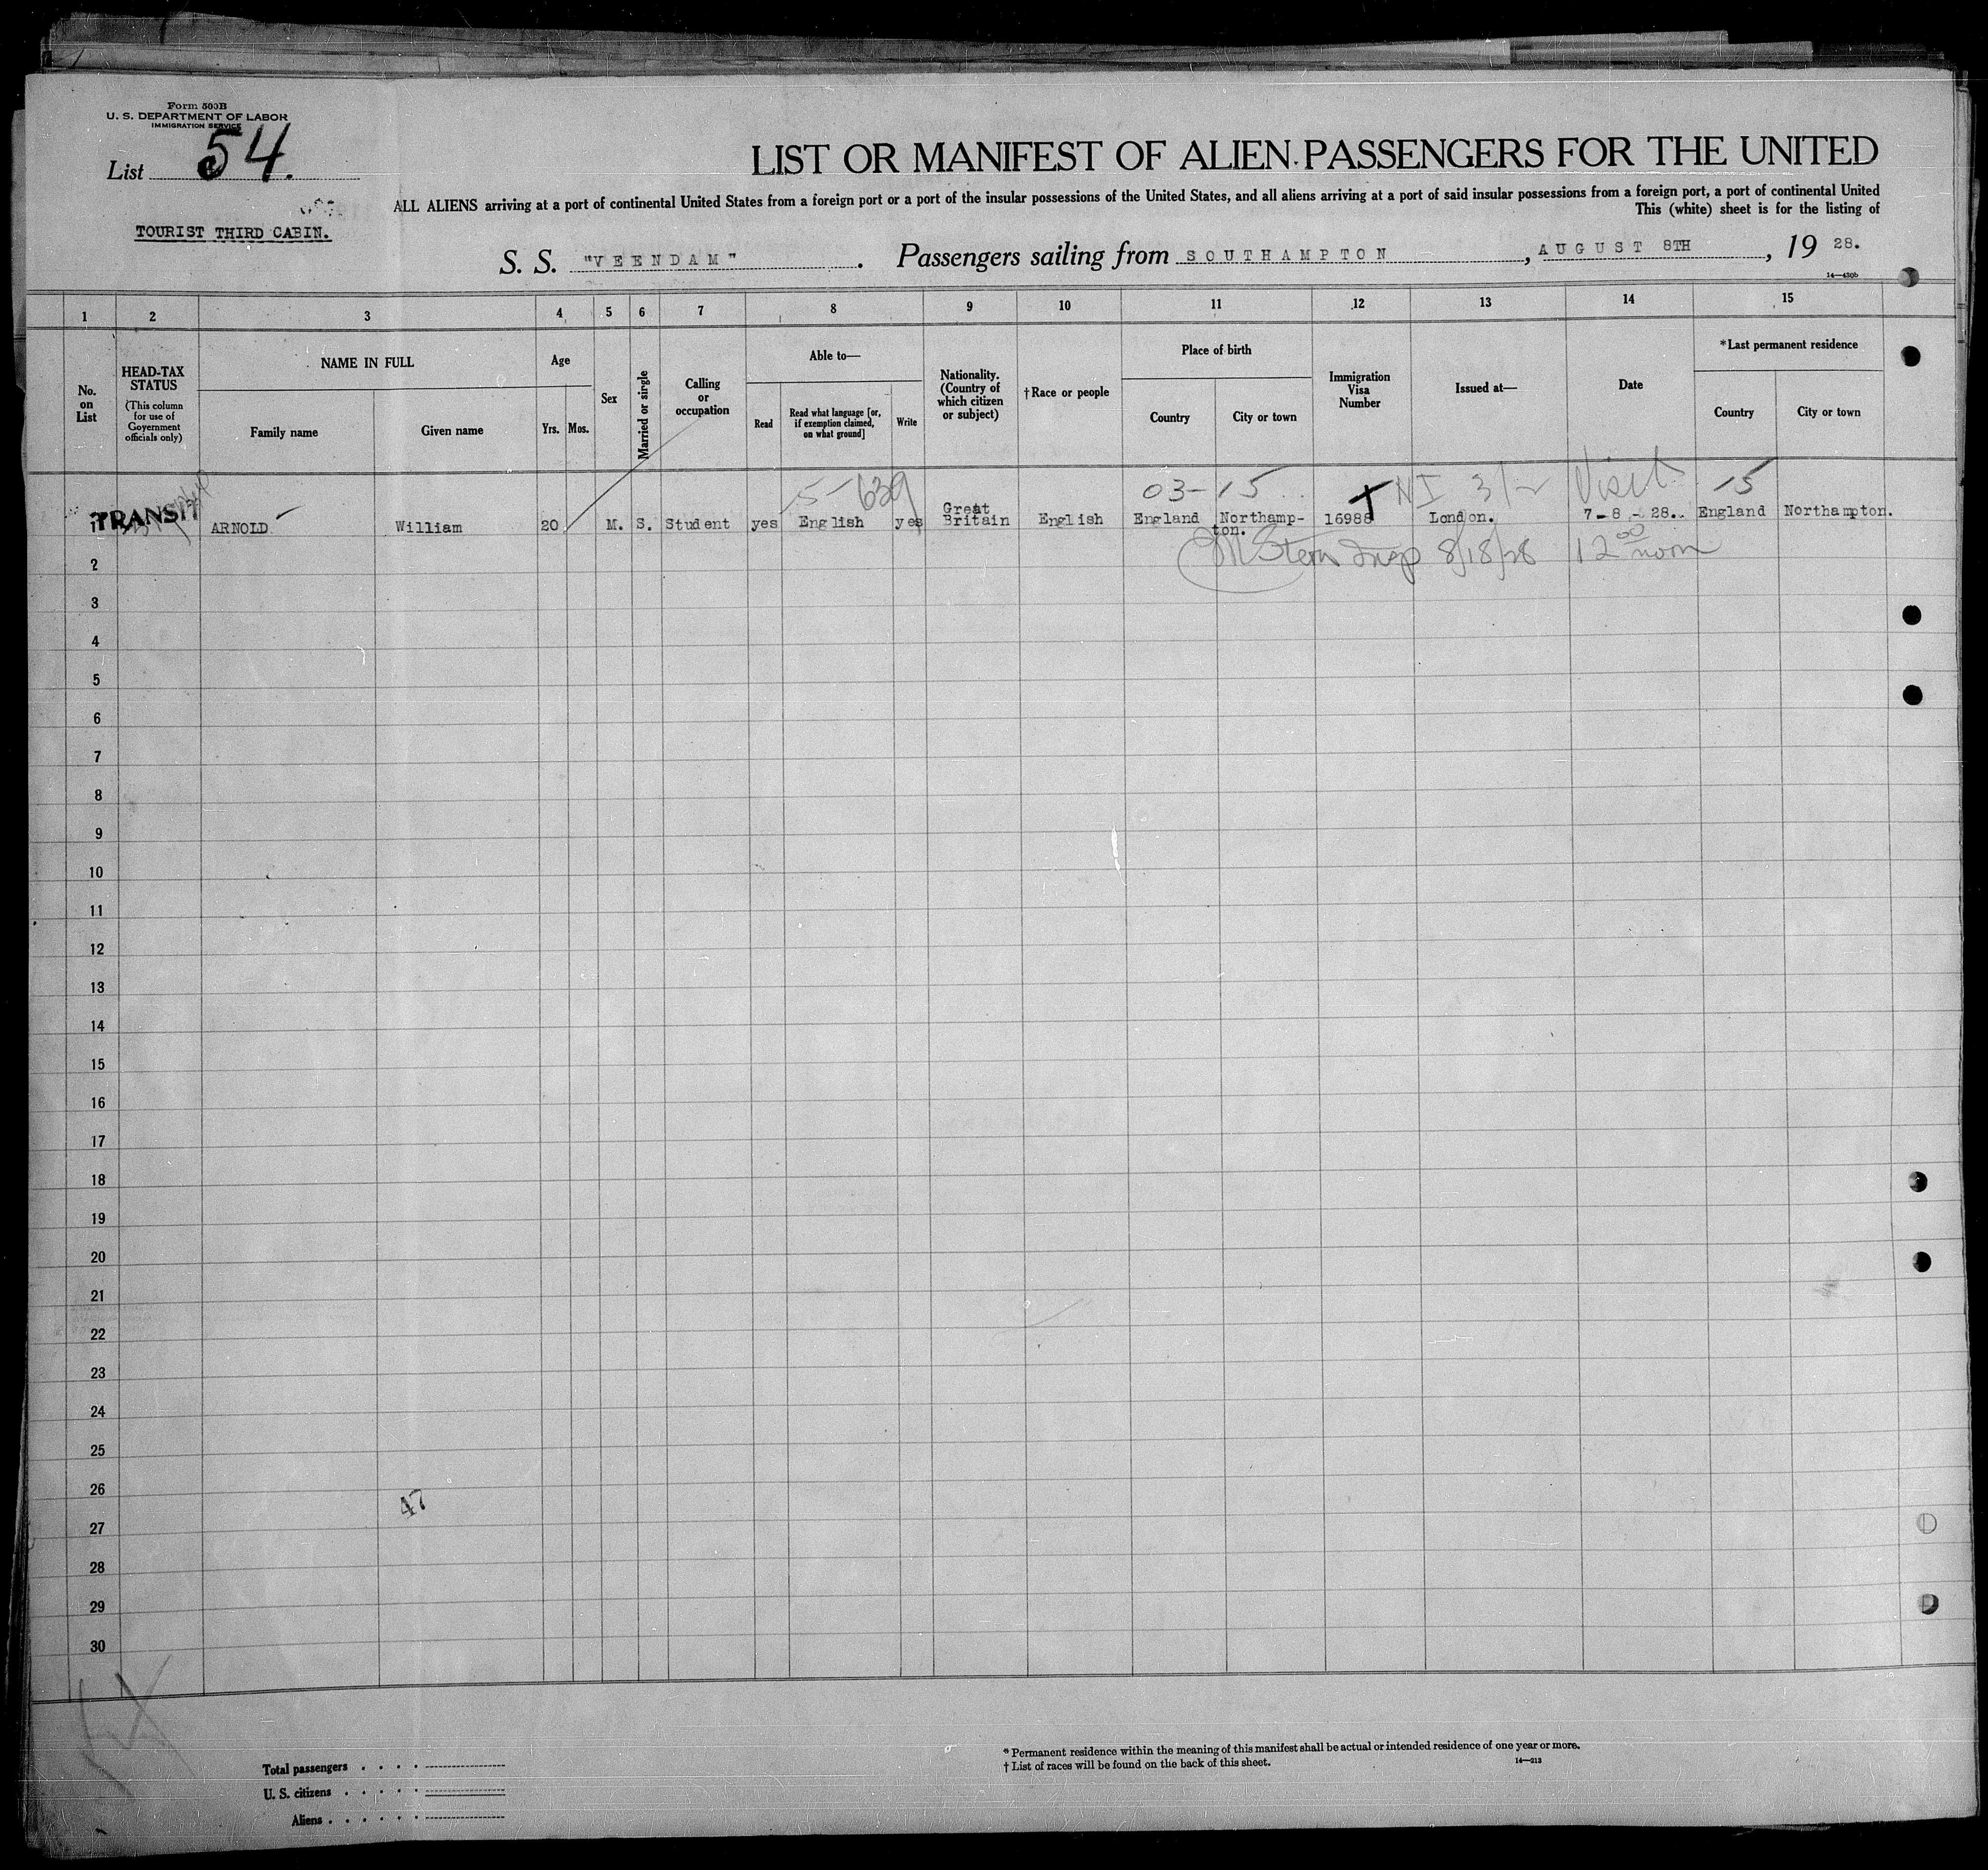 Form 500B
U. S. DEPARTMENT OF LABOR
IMMIGRATION SERVICE
List 54.
LIST OR MANIFEST OF ALIEN PASSENGERS FOR THE UNITED
ALL ALIENS arriving at a port of continental United States from a foreign port or a port of the insular possessions of the United States, and all aliens arriving at a port of said insular possessions from a foreign port, a port of continental United
This (white) sheet is for the listing of
TOURIST THIRD CABIN.
S. S. "VEENDAM". Passengers sailing from SOUTHAMPTON, AUGUST 8TH, 19 28.
14—430b
1 2 3 4 5 6 7 8 9 10 11 12 13 14 15
No. on List
HEAD-TAX STATUS
(This column for use of Government officials only)
NAME IN FULL
Family name
Given name
Age
Yrs. Mos.
Sex
Married or single
Calling or occupation
Able to—
Read
Read what language [or, if exemption claimed, on what ground]
Write
Nationality. (Country of which citizen or subject)
†Race or people
Place of birth
Country
City or town
Immigration Visa Number
Issued at—
Date
*Last permanent residence
Country
City or town
5-639 03-15 X NI 3/2 Visit 15
1 TRANSIT ARNOLD William 20 M. S. Student yes English yes Great Britain English England Northampton. 16988 London. 7-8-28. England Northampton.
Stern Insp 8/18/28 12 00 noon
2
3
4
5
6
7
8
9
10
11
12
13
14
15
16
17
18
19
20
21
22
23
24
25
26
47
27
28
29
30
* Permanent residence within the meaning of this manifest shall be actual or intended residence of one year or more.
† List of races will be found on the back of this sheet.
14—213
Total passengers . . . .
U. S. citizens . . . . .
Aliens . . . . . .